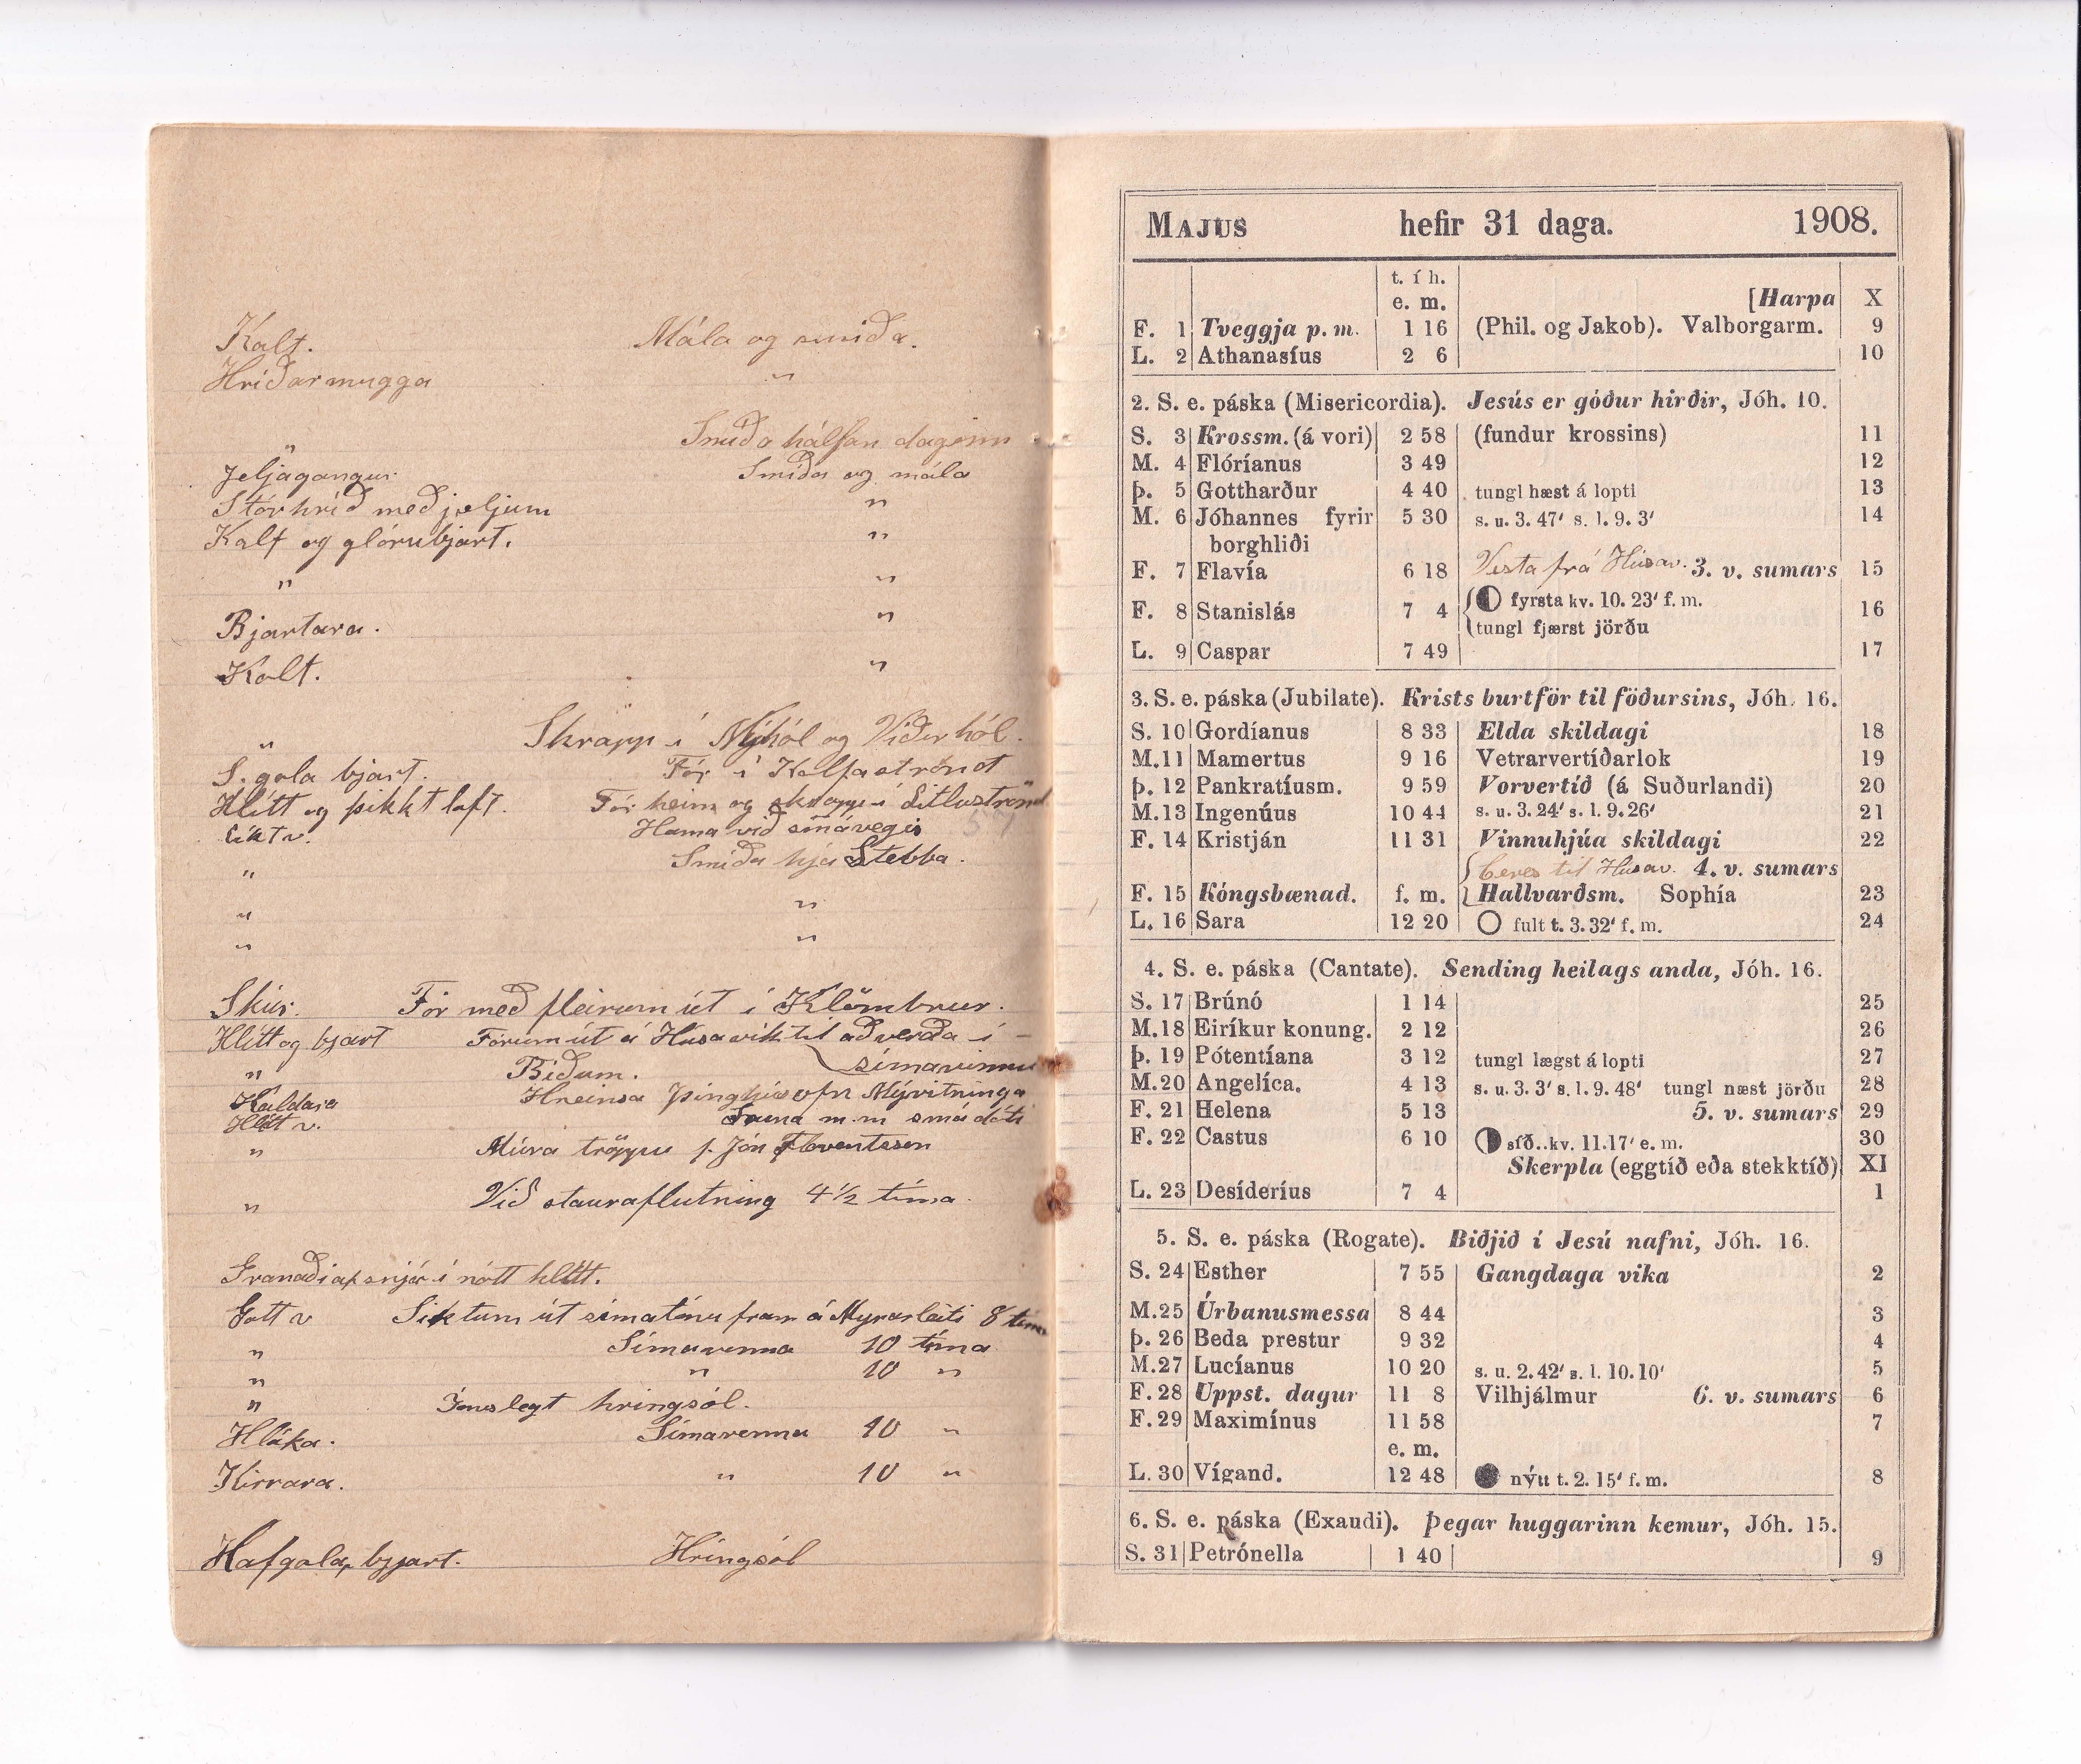 Kalt. Mála og smíða.
Hríðarmugga "
" Smíða hálfan daginn
Jeljagangur. Smíða og mála
Stórhríð með jeljum "
Kalt og glórubjart. "
" "
Bjartara. "
Kalt. "
" Skrapp í Nýhól og Víðirhól.
S. gola bjart. Fór í Kalfaströnd
Hlítt og þikkt loft. Fór heim og skrapp í Litluströnd
Líkt v. Hama við smávegis
" Smíða hjá Stebba.
" "
" "
Skúr. Fór með fleirum út í Klömbrur.
Hlítt og bjart Fórum út á Húsavík til að verða í
símavinnu
" Biðum.
Kaldara Hreinsa þinghús Mývitninga
Hlítt v. m.m smá dóti
" Múra tröppu f. Jón Floventsson
" Við stauraflutning 4 1/2 tíma.
Gránaði af snjó í nótt hlítt.
Gott v fram á Myrarleiti 8 tíma
" Símavinna 10 tíma
" " 10 "
" hringsól.
Hláka. Símavinna 10 "
Kirrara. " 10 "
Hafgola, bjart. Hringsól
MAJUS hefir 31 daga. 1908.
t. í h.
e. m. [Harpa X
F. 1 Tveggja p. m. 1 16 (Phil. og Jakob). Valborgarm. 9
L. 2 Athanasíus 2 6 10
2. S. e. páska (Misericordia). Jesús er góður hirðir, Jóh. 10.
S. 3 Krossm. (á vori) 2 58 (fundur krossins) 11
M. 4 Flóríanus 3 49 12
Þ. 5 Gottharður 4 40 tungl hæst á lopti 13
M. 6 Jóhannes fyrir 5 30 s. u. 3. 47' s. l. 9. 3' 14
borghliði
F. 7 Flavía 6 18 Vesta frá Húsav. 3. v. sumars 15
F. 8 Stanislás 7 4 fyrsta kv. 10. 23' f. m. 16
tungl fjærst jörðu
L. 9 Caspar 7 49 17
3. S. e. páska (Jubilate). Krists burtför til föðursins, Jóh. 16.
S. 10 Gordíanus 8 33 Elda skildagi 18
M. 11 Mamertus 9 16 Vetrarvertíðarlok 19
Þ. 12 Pankratíusm. 9 59 Vorvertíð (á Suðurlandi) 20
M. 13 Ingenúus 10 44 s. u. 3. 24' s. l. 9. 26' 21
F. 14 Kristján 11 31 Vinnuhjúa skildagi 22
Ceres til Húsav. 4. v. sumars
F. 15 Kóngsbænad. f. m. Hallvarðsm. Sophía 23
L. 16 Sara 12 20 fult t. 3. 32' f. m. 24
4. S. e. páska (Cantate). Sending heilags anda, Jóh. 16.
S. 17 Brúnó 1 14 25
M. 18 Eiríkur konung. 2 12 26
Þ. 19 Pótentíana 3 12 tungl lægst á lopti 27
M. 20 Angelíca. 4 13 s. u. 3. 3' s. l. 9. 48' tungl næst jörðu 28
F. 21 Helena 5 13 5. v. sumars 29
F. 22 Castus 6 10 síð.. kv. 11. 17' e. m. 30
Skerpla (eggtíð eða stekktíð) XI
L. 23 Desíderíus 7 4 1
5. S. e. páska (Rogate). Biðjið í Jesú nafni, Jóh. 16.
S. 24 Esther 7 55 Gangdaga vika 2
M. 25 Úrbanusmessa 8 44 3
Þ. 26 Beda prestur 9 32 4
M. 27 Lucíanus 10 20 s. u. 2. 42' s. l. 10. 10' 5
F. 28 Uppst. dagur 11 8 Vilhjálmur 6. v. sumars 6
F. 29 Maximínus 11 58 7
e. m.
L. 30 Vígand. 12 48 nýtt t. 2. 15' f. m. 8
6. S. e. páska (Exaudi). Þegar huggarinn kemur, Jóh. 15.
S. 31 Petrónella 1 40 9